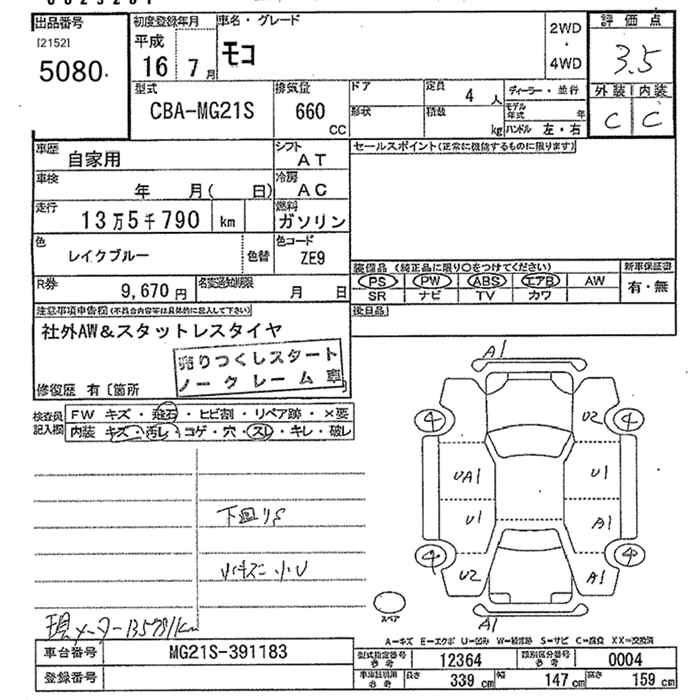 出品番号
[2152]
5080
初度登録年月
平成
16 7月
車名・グレード
モコ
2WD
・
4WD
評価点
3.5
外装 内装
C C
型式
CBA-MG21S
排気量
660
CC
ドア
形状
定員 4 人
積数 kg
ディーラー・並行
モデル年式 年
ハンドル 左・右
車歴 自家用
シフト
AT
車検 年 月( 日)
冷房
AC
走行
13万5千790 km
燃料
ガソリン
色
レイクブルー
色替
色コード
ZE9
R券 9,670円
名変通知期限 月 日
セールスポイント(正常に機能するものに限ります)
装備品 (純正品に限り○をつけてください)
PS PW ABS エアB AW
SR ナビ TV カワ
新車保証書
有・無
後日品
注意事項申告欄(不具合内容等は具体的に記入して下さい)
社外AW&スタットレスタイヤ
売りつくしスタート
ノークレーム車
修復歴 有〔箇所
検査員記入欄
FW キズ・飛石・ヒビ割・リペア跡・×要
内装 キズ・汚レ・コゲ・穴・スレ・キレ・破レ
下回りS
小
現メーター135791km
A1
4 U2 4
UA1 U1
U1 A1
4 U2 A1 4
スペア
A1
A=キズ E=エクボ U=凹み W=補修跡 S=サビ C=腐食 XX=交換済
車台番号 MG21S-391183
登録番号
型式指定番号 参考 12364
類別区分番号 参考 0004
車庫証明用 参考 長さ 339cm 幅 147cm 高さ 159cm